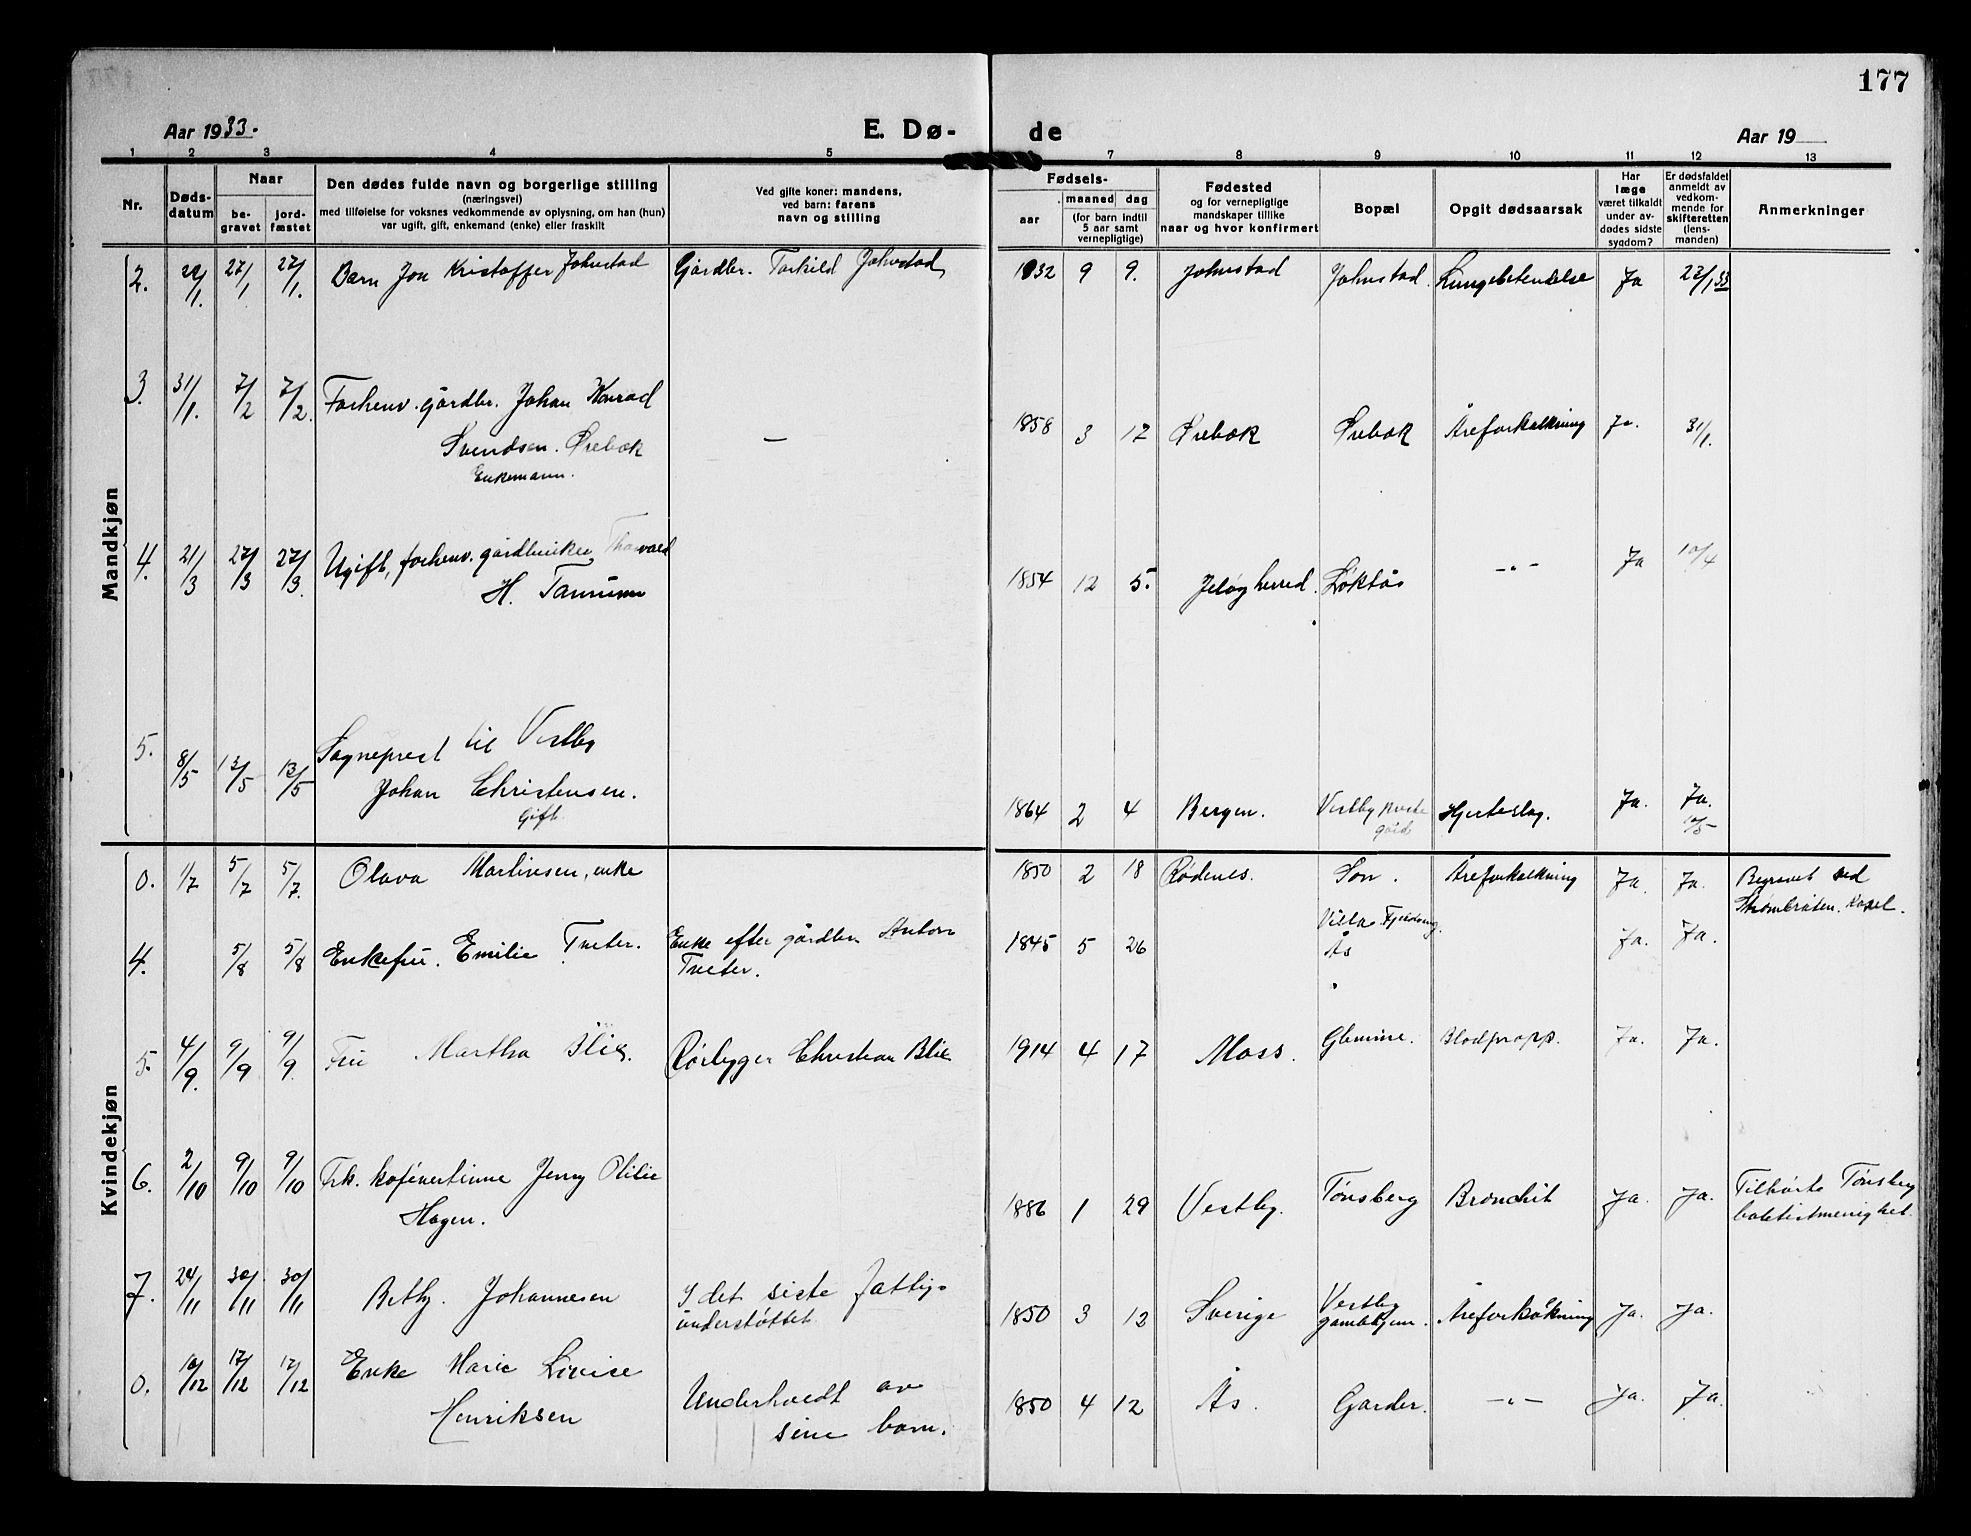 177
Aar 1933.
E. Dø-
de
Aar 19
1 2 3 4 5 7 8 9 10 11 12 13
Nr.
Døds-
datum
Naar
be-
gravet
jord-
fæstet
Den dødes fulde navn og borgerlige stilling
(næringsvei)
med tilføielse for voksnes vedkommende av oplysning, om han (hun)
var ugift, gift, enkemand (enke) eller fraskilt
Ved gifte koner: mandens,
ved barn: farens
navn og stilling
Fødsels-
aar
maaned dag
(for barn indtil
5 aar samt
vernepligtige)
Fødested
og for vernepligtige
mandskaper tillike
naar og hvor konfirmert
Bopæl
Opgit dødsaarsak
Har
læge
været tilkaldt
under av-
dødes sidste
sygdom?
Er dødsfaldet
anmeldt av
vedkom-
mende for
skifteretten
(lens-
manden)
Anmerkninger
Mandkjøn
2. 27/1 27/1. Barn Jon Kristoffer Johnstad Gårdbr. Torkild Johnstad 1932 9 9. Johnstad Johnstad. Lungebetendelse Ja 27/1 33
3. 31/1. 7/2 7/2. Forhenv. gårdbr. Johan Konrad
Svendsen. Ørebæk
Enkemann.
— 1858 3 17 Ørebæk Ørebæk Åreforkalkning Ja. 31/1.
4. 21/3 27/3 27/3. Ugift, forhenv. gårdbruker Thorvald
H. Tannum
1854 12 5. Jeløy herred. Løktås —„— Ja 10/4
5. 8/5 13/5 13/5 Sogneprest til Vestby
Johan Christensen.
Gift.
1864 2 4 Bergen. Vestby preste
gård
Hjerteslag. Ja. Ja.
10/5
Kvindekjøn
0. 1/7 5/7 5/7. Olava Martinsen, enke 1850 2 18 Rødenes. Son. Åreforkalkning Ja. Ja. Begravet ved
Strømbråten. Kapel.
4. 5/8 5/8 Enkefru. Emilie Tveter. Enke efter gårdbr. Anton
Tveter.
1845 5 26 Villa
Ås
Ja. Ja.
5. 4/9. 9/9 9/9. Fru Martha Blix. Rørlegger Christian Blix 1914 4 17 Moss. Glemme. Blodpropp. Ja. Ja.
6. 2/10 9/10 9/10 Frk. Jenny Otilie
Hagen.
1886 1 29 Vestby. Tønsberg Bronchit Ja. Ja. Tilhørte Tønsberg
babtistmenighet.
7. 24/11 30/11 30/11 Bethy. Johannesen I det siste fattig-
understøttet.
1850 3 12 Sverige Vestby
gamlehjem.
Åreforkalkning Ja. Ja.
0. 10/12 17/12 17/12 Enke Marie Lovise
Henriksen
Underholdt av
sine barn.
1850 4 12 Ås. Garder. —„— Ja. Ja.